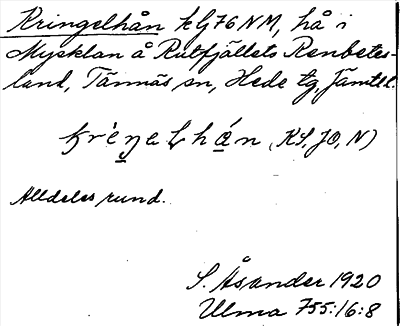 Kringelhån klJ76 NM, hå i
Mysklan å Rutfjällets Renbetes-
land, Tännäs sn, Hede tg, Jämtl l.
krèŋelhán (KS, JO, N)
Alldeles rund.
S. Åsander 1920
Ulma 755:16:8